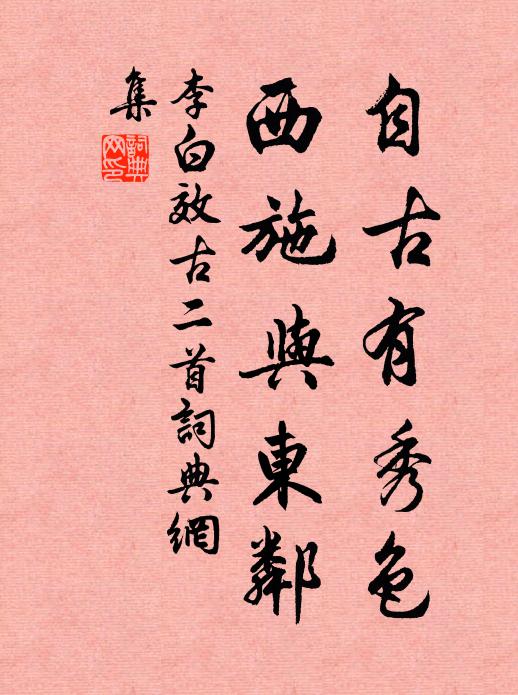 自古有秀色
西施與東鄰
李白效古二首詞典網
集
詞典
网印